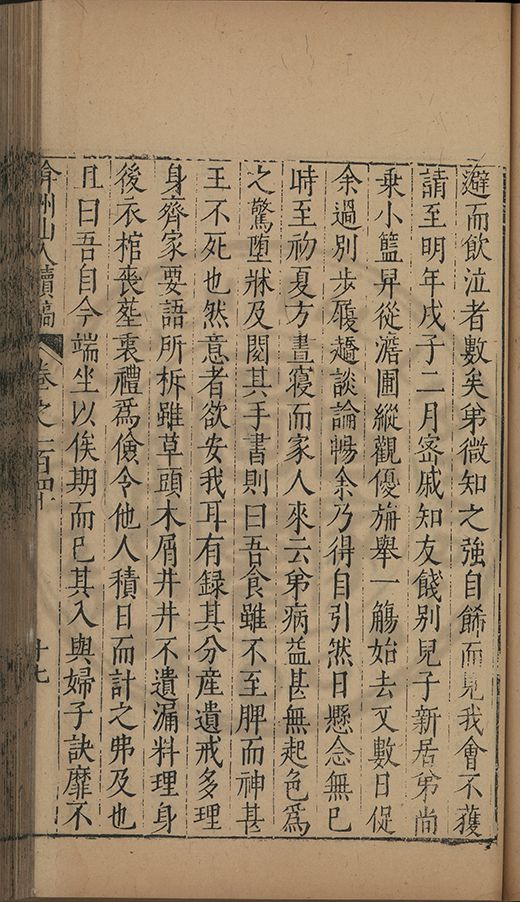 避而飲泣者數矣弟微知之強自餙而見我會不獲
請至明年戊子二月宻戚知友餞別兒子新居弟尚
乗小籃舁從澹圃縱觀優旃舉一觴始去又數日促
余過別步履趫談論暢余乃得自引然日懸念無已
時至初夏方晝寢而家人來云弟病益甚無起色爲
之驚堕牀及閱其手書則曰吾食雖不至脾而神甚
王不死也然意者欲安我耳有録其分産遺戒多理
身齊家要語所析雖草頭木屑井井不遺漏料理身
後衣棺喪塟裹禮爲儉令他人積日而計之弗及也
且曰吾自今端坐以俟期而已其入與婦子訣靡不
弇州山人續稿 卷之一百四十 十七